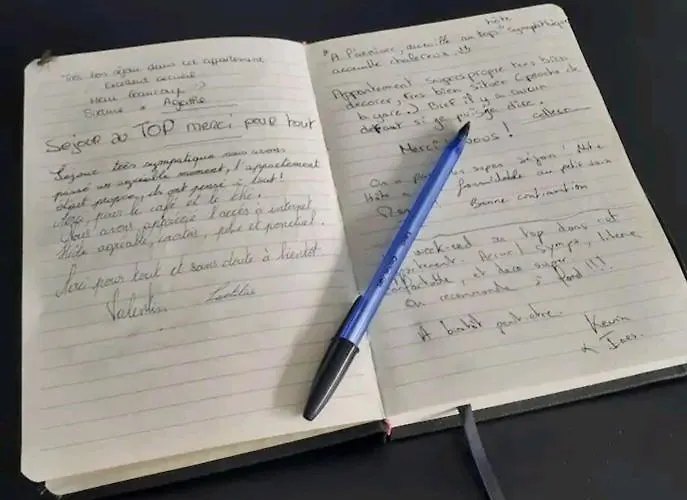 Très bon séjour dans cet appartement
Merci beaucoup :)
& Agathe
Séjour au TOP merci pour tout
Séjour très sympathique nous avons
passé un agréable moment, l'appartement
était propre, ils ont pensé à tout!
pour le café et le thé.
Nous avons apprécié l'accès à internet
Hôte agréable, et ponctuel.
Merci pour tout et sans doute à bientôt.
Valentin
hôte
*A l'arrivée, au top sympathique
accueil chaleureux, !!!
Appartement très bien
décorer, très bien situer (proche de
la gare.) Bref il y a aucun
défaut si je puisse dire.
Merci à vous!
On a super séjour! Hôte
formidable au petit soin
Bonne continuation
week-end au top dans cet
appartement. Accueil sympa, literie
confortable, et déco super.
On recommande à fond!!!
A bientôt peut-être.
Kevin
&